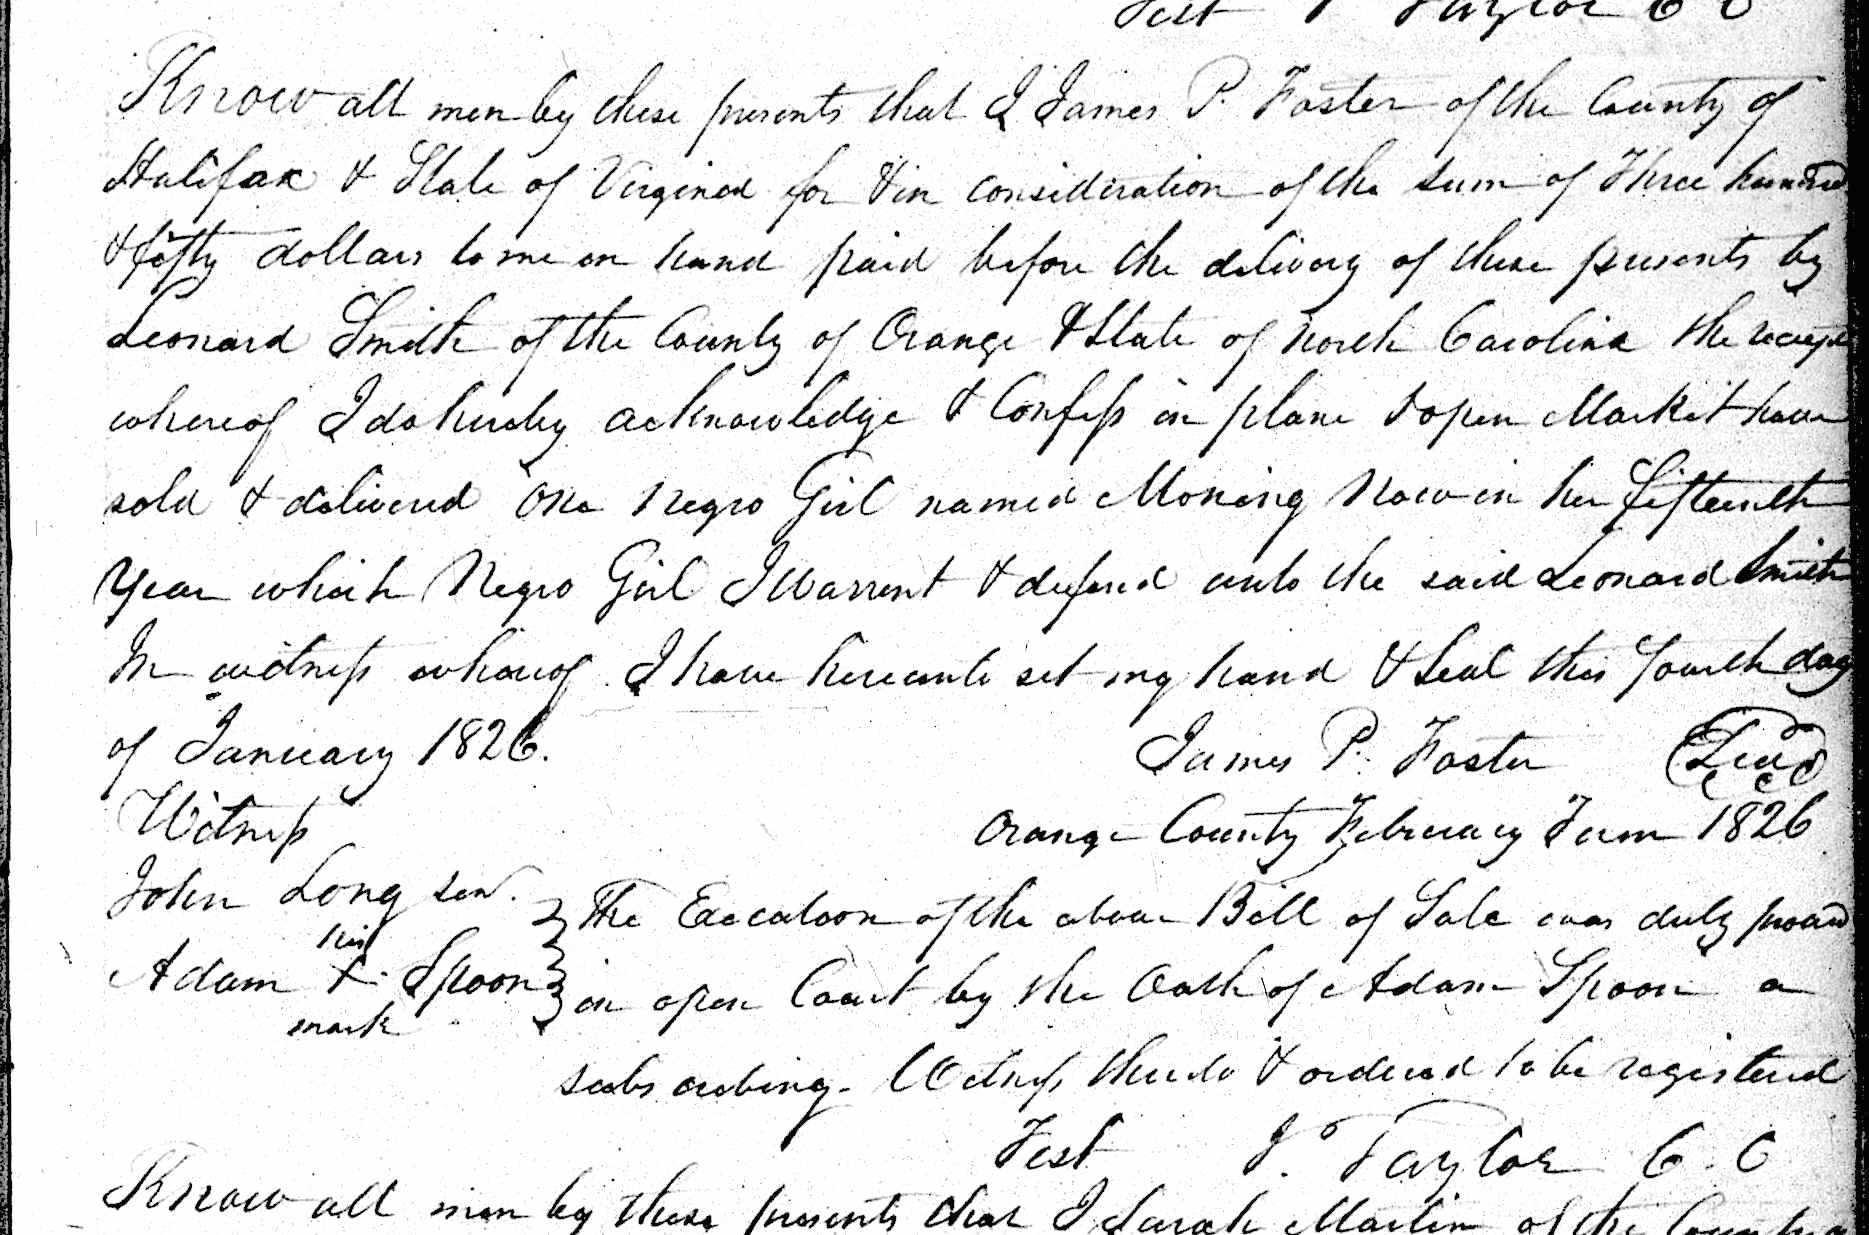 Test J Taylor C C
Know all men by these presents that I James P. Foster of the County of
Halifax & State of Virginia for & in consideration of the sum of Three hundred
& fifty dollars to me in hand paid before the delivery of these presents by
Leonard Smith of the County of Orange & State of North Carolina the receipt
whereof I do hereby acknowledge & Confess in plane & open Market have
sold & delivered one negro Girl named Moning Now in her fifteenth
Year which Negro Girl I Warrent & defend unto the said Leonard Smith
In witness whereof I have hereunto set my hand & Seal this fourth day
of January 1826. James P. Foster Seal
Witness Orange County February Term 1826
John Long sen.
The Execution of the above Bill of Sale was duly proved
his
Adam + Spoon
mark
in open Court by the Oath of Adam Spoon a
subscribing Witness thereto & ordered to be registered
Test J. Taylor C. C
Know all men by these presents that I Sarah Martin of the County